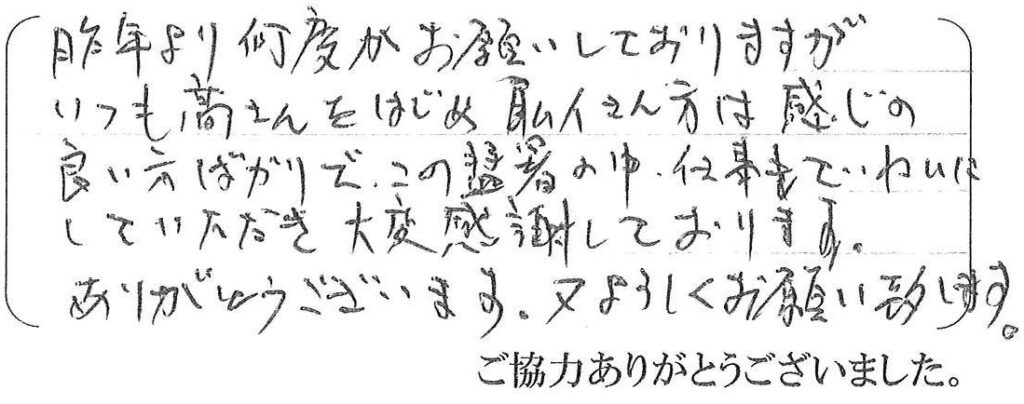 昨年より何度かお願いしておりますが
いつも高さんをはじめ職人さん方は感じの
良い方ばかりで、この猛暑の中、仕事もていねいに
していただき大変感謝しております。
ありがとうございます。又よろしくお願い致します。
ご協力ありがとうございました。